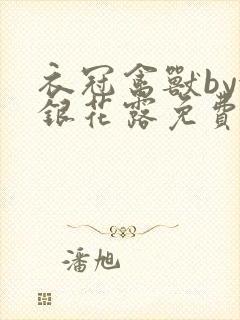 衣冠禽獸by
銀花露免費
潘旭